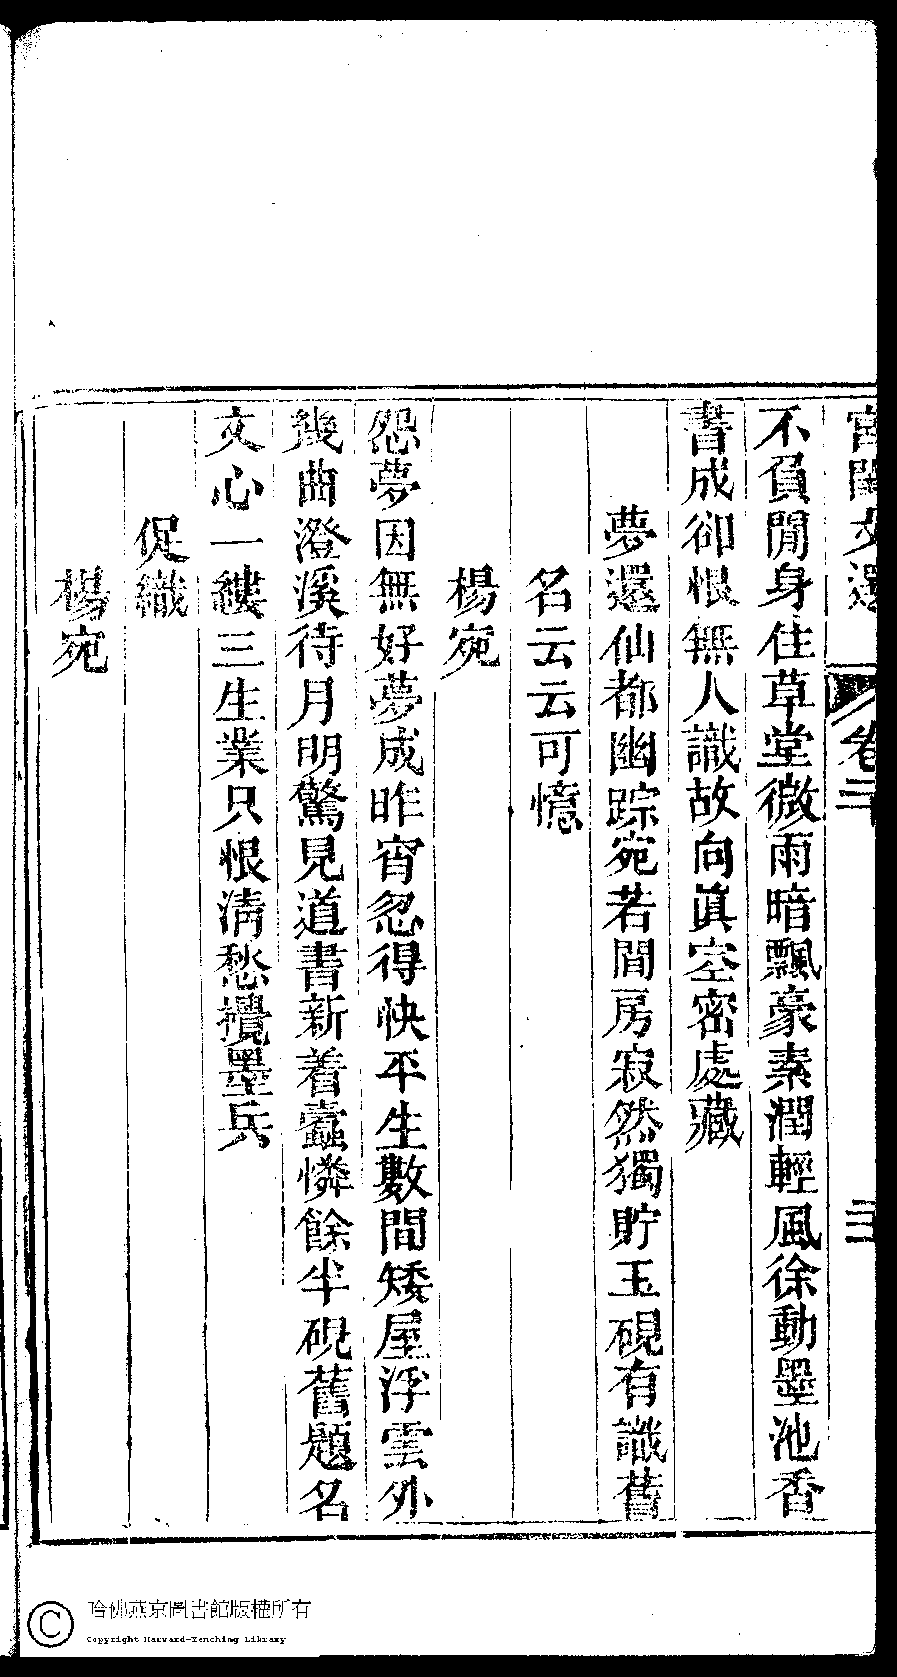 宮閨文選　卷二　二
不負閒身住草堂微雨暗飄豪素潤輕風徐動墨池香
書成卻恨無人識故向眞空密處藏
夢還仙都幽踪宛若間房寂然獨貯玉硯有讖舊
名云云可憶
楊宛
怨夢因無好夢成昨宵忽得快平生數間矮屋浮雲外
幾曲澄溪待月明驚見道書新着蠹憐餘半硯舊題名
文心一縷三生業只恨淸愁攪墨兵
促織
楊宛
哈佛燕京圖書館版權所有
Copyright Harvard-Yenching Library